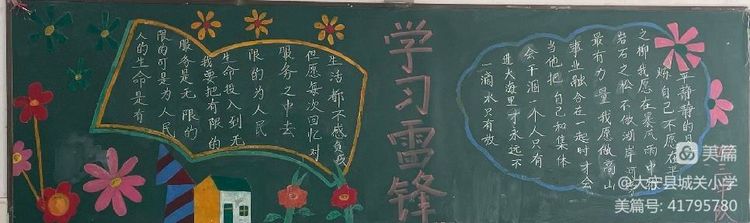 人的生命是有
限的可是为人民
服务是无限的
我要把有限的
生命投入到无
限的为人民
服务之中去
但愿每次回忆对
生活都不感负疚
学习雷锋
一滴水只有放
进大海里才永远不
会干涸一个人只有
当他把自己和集体
事业融合在一起时才会
最有力量我愿做高山
岩石之松不做湖岸河
之柳我愿在暴风雨中
炼自己不愿在平
平静静的
美篇
@大宁县城关小学
美篇号: 41795780